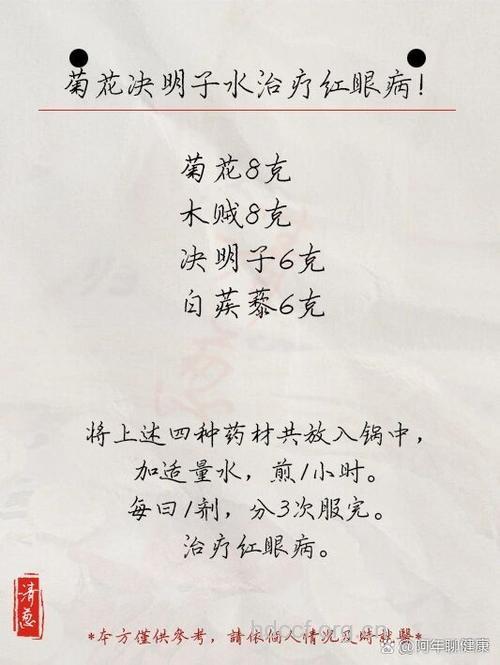 菊花决明子水治疗红眼病!
菊花8克
木贼8克
决明子6克
白蒺藜6克
将上述四种药材共放入锅中，
加适量水，煎1小时。
每日1剂，分3次服完。
治疗红眼病。
清葱
*本方僅供參考，請依個人情況及時就醫*
@阿年聊健康